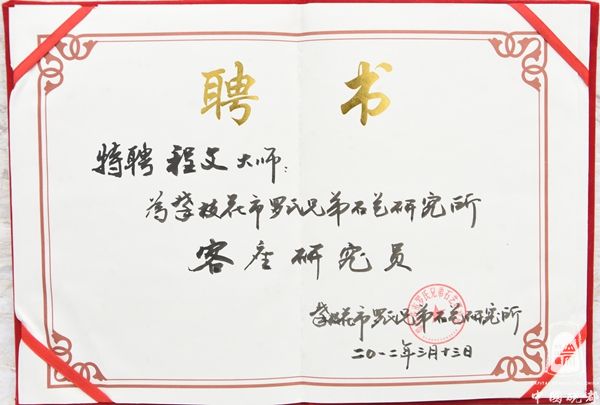 聘书
特聘 程文大师:
为攀枝花市罗氏兄弟石艺研究所
客座研究员
攀枝花市罗氏兄弟石艺研究所
二〇一二年三月十三日
中国砚都